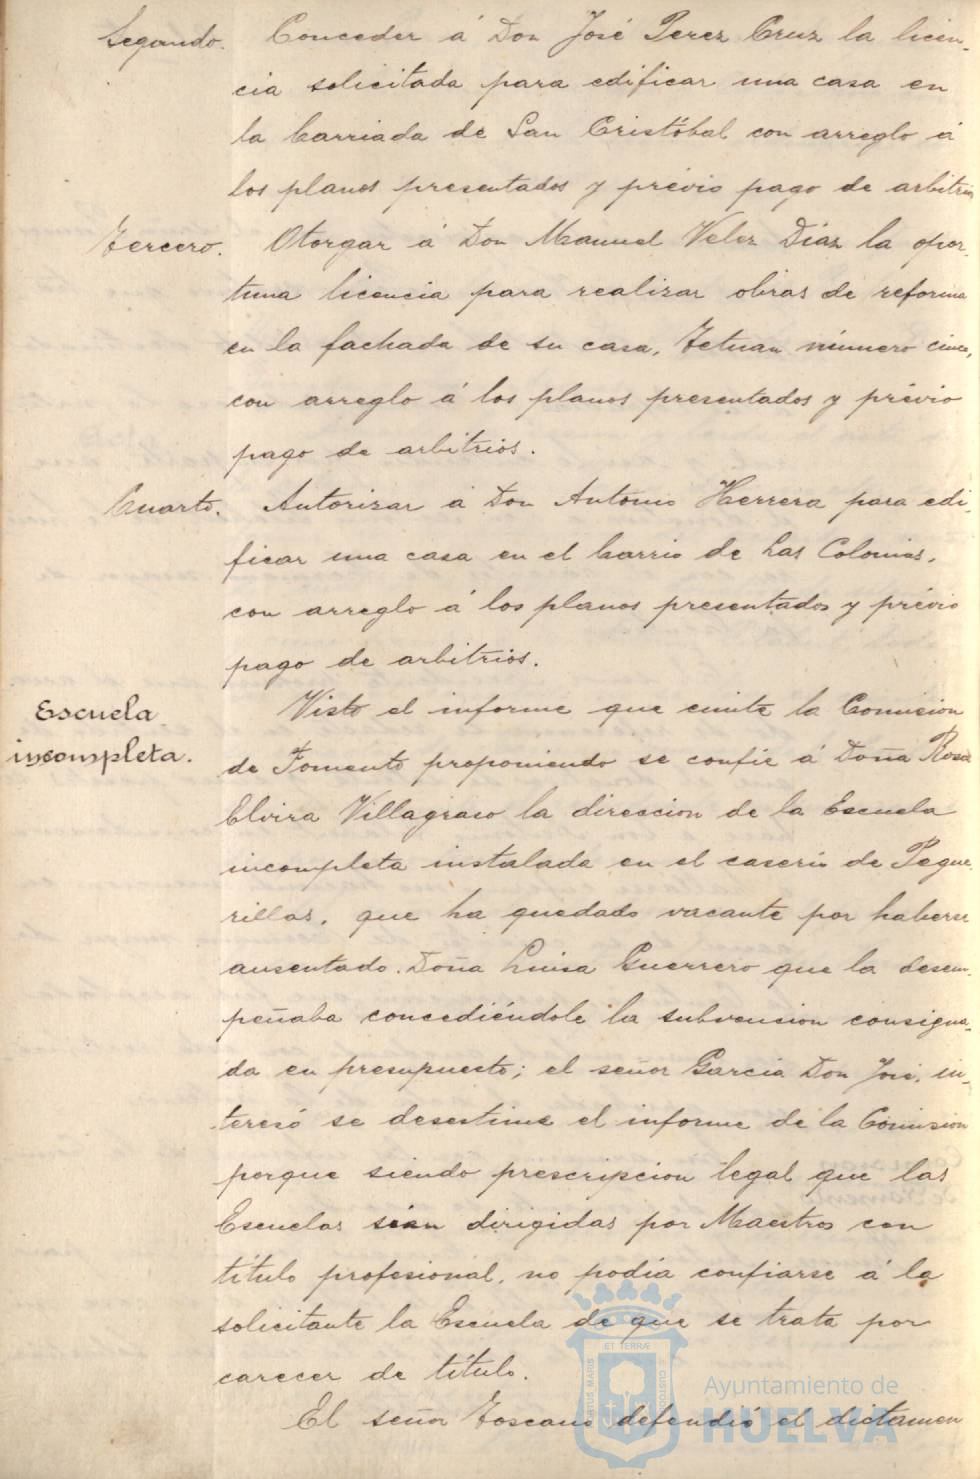 Segundo. Conceder á Don José Perez Cruz la licen-
cia solicitada para edificar una casa en
la barriada de San Cristóbal con arreglo á
los planos presentados y prévio pago de arbitrios
Tercero. Otorgar á Don Manuel Velez Díaz la opor-
tuna licencia para realizar obras de reforma
en la fachada de su casa, Tetuan número cinco,
con arreglo á los planos presentados y prévio
pago de arbitrios.
Cuarto. Autorizar á Don Antonio Herrera para edi-
ficar una casa en el barrio de Las Colonias,
con arreglo á los planos presentados y prévio
pago de arbitrios.
Escuela
incompleta.
Visto el informe que emite la Comision
de Fomento proponiendo se confie á Doña Rosa
Elvira Villagraso la direccion de la Escuela
incompleta instalada en el caserio de Pegue-
rillas, que ha quedado vacante por haberse
ausentado Doña Luisa Guerrero que la desem-
peñaba concediéndole la subvencion consigna-
da en presupuesto; el señor Garcia Don José, in-
teresó se desestime el informe de la Comision
porque siendo prescripcion legal que las
Escuelas sean dirigidas por Maestros con
título profesional, no podia confiarse á la
solicitante la Escuela de que se trata por
carecer de título.
El señor Toscano defendió el dictamen
ET TERRÆ
PORTUS MARIS
CUSTODIA
Ayuntamiento de
HUELVA